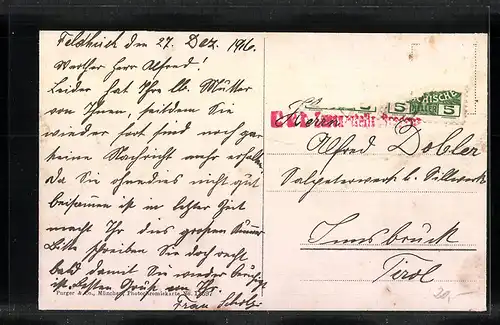 Feldkirch den 27. Dez. 1916.
Werther Herr Alfred!
Leider hat Ihre lb. Mutter
von Ihnen, seitdem Sie
wieder fort sind noch gar
keine Nachricht mehr erhalten
Da Sie ohnedies nicht gut
beisammen ist in letzter Zeit
macht Ihr dies großen Kummer
Bitte schreiben Sie doch recht
bald damit Sie wieder beruhigt
ist. Besten Gruß von Ihr.
Frau
Purger & Co., München, Photochromiekarte No.
5 5
Herrn
Alfred Dobler
Salpeterwerk b. Sillwerk
Innsbruck
Tirol
20,-